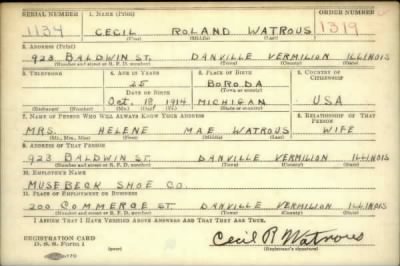 SERIAL NUMBER 1. NAME (Print) ORDER NUMBER
1134 CECIL ROLAND WATROUS 1319
(First) (Middle) (Last)
2. ADDRESS (Print)
923 BALDWIN ST. DANVILLE VERMILION ILLINOIS
(Number and street or R. F. D. number) (Town) (County) (State)
3. TELEPHONE 4. AGE IN YEARS 5. PLACE OF BIRTH 6. COUNTRY OF CITIZENSHIP
25 BORODA
DATE OF BIRTH (Town or county)
Oct. 18 1914 MICHIGAN USA
(Exchange) (Number) (Mo.) (Day) (Yr.) (State or country)
7. NAME OF PERSON WHO WILL ALWAYS KNOW YOUR ADDRESS 8. RELATIONSHIP OF THAT PERSON
MRS. HELENE MAE WATROUS WIFE
(Mr., Mrs., Miss) (First) (Middle) (Last)
9. ADDRESS OF THAT PERSON
923 BALDWIN ST. DANVILLE VERMILION ILLINOIS
(Number and street or R. F. D. number) (Town) (County) (State)
10. EMPLOYER'S NAME
MUSEBECK SHOE CO.
11. PLACE OF EMPLOYMENT OR BUSINESS
200 COMMERCE ST DANVILLE VERMILION ILLINOIS
(Number and street or R. F. D. number) (Town) (County) (State)
I AFFIRM THAT I HAVE VERIFIED ABOVE ANSWERS AND THAT THEY ARE TRUE.
REGISTRATION CARD
D. S. S. Form 1 (over) Cecil R Watrous
(Registrant's signature)